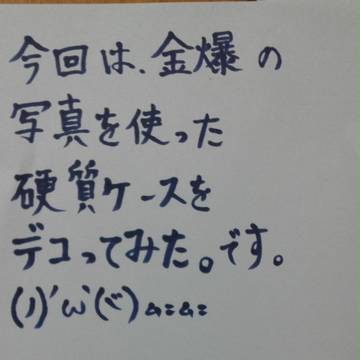 今回は、金爆の
写真を使った
硬質ケースを
デコってみた。です。
(ﾉ)'ω'(ヾ)ムニムニ